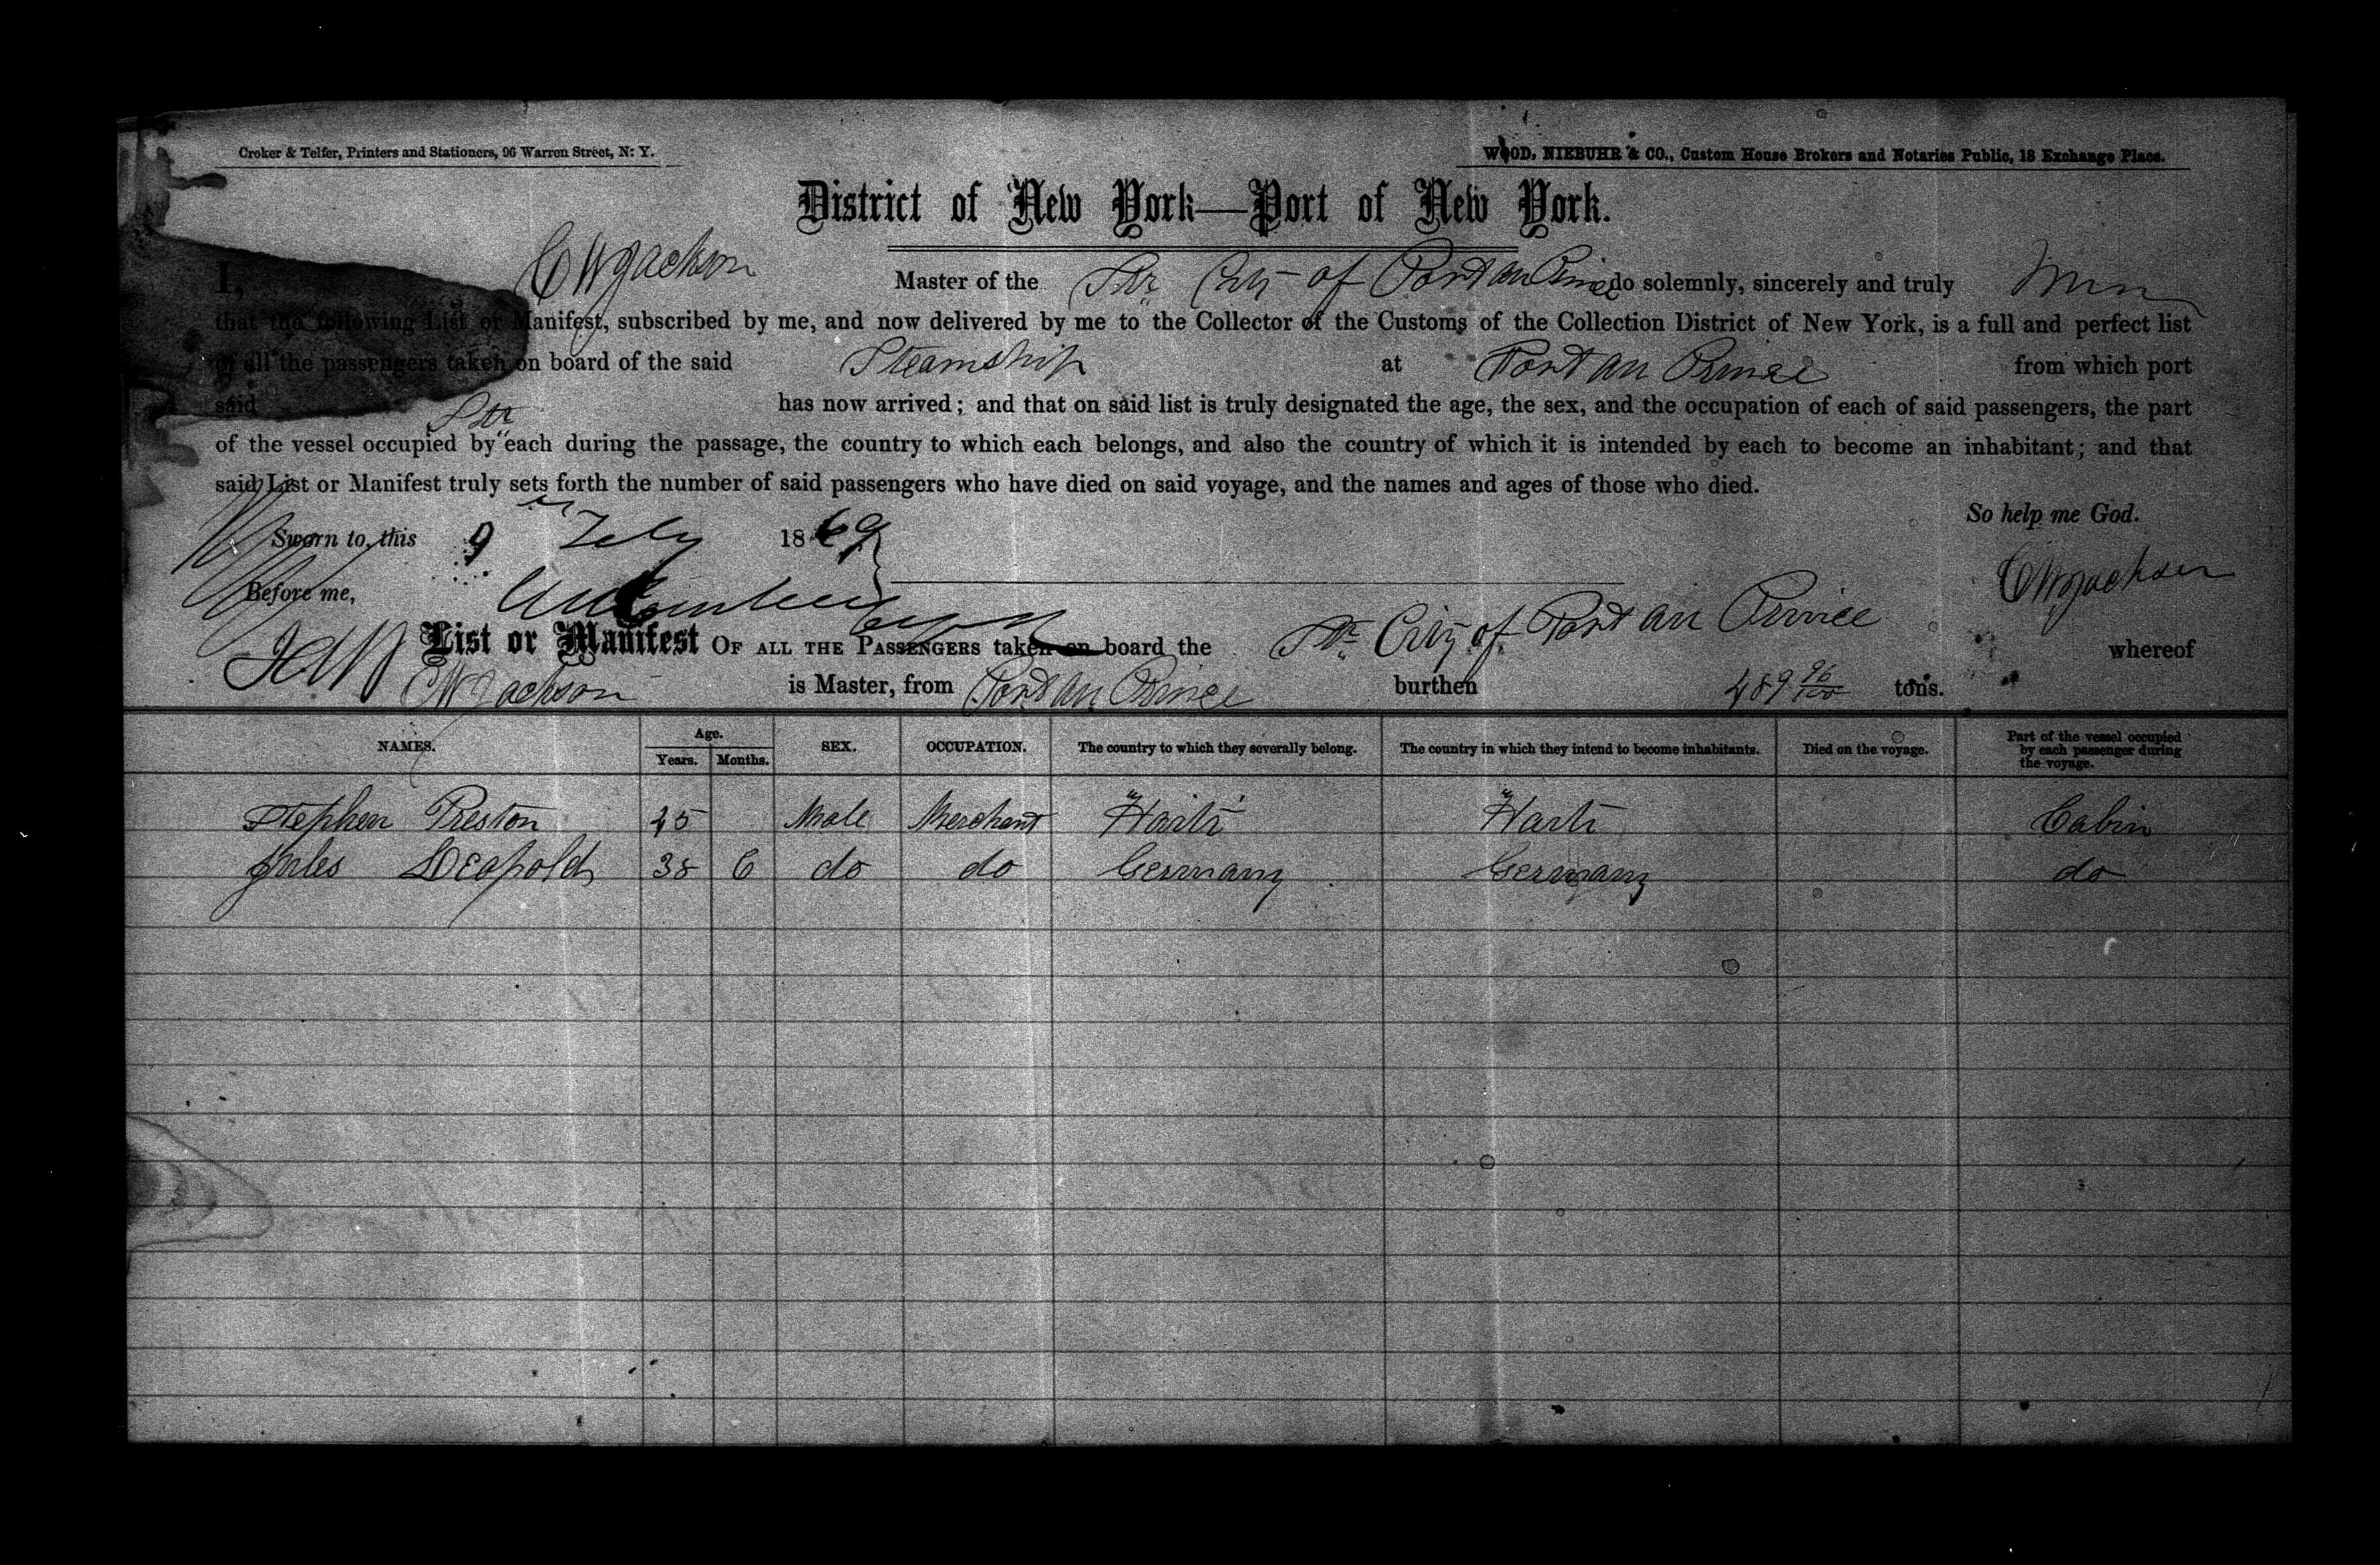 Croker & Telfer, Printers and Stationers, 96 Warren Street, N. Y.
WOOD, NIEBUHR & CO., Custom House Brokers and Notaries Public, 18 Exchange Place.
District of New York—Port of New York.
I, C W Jackson Master of the Str City of Port au Prince do solemnly, sincerely and truly
that the following List or Manifest, subscribed by me, and now delivered by me to the Collector of the Customs of the Collection District of New York, is a full and perfect list
of all the passengers taken on board of the said Steamship at Port au Prince from which port
said Str has now arrived; and that on said list is truly designated the age, the sex, and the occupation of each of said passengers, the part
of the vessel occupied by each during the passage, the country to which each belongs, and also the country of which it is intended by each to become an inhabitant; and that
said List or Manifest truly sets forth the number of said passengers who have died on said voyage, and the names and ages of those who died.
So help me God.
Sworn to, this 9 July 1869
C W Jackson
Before me,
List or Manifest OF ALL THE PASSENGERS taken on board the Str City of Port au Prince whereof
C W Jackson is Master, from Port au Prince burthen 489 96/100 tons.
NAMES. Age. Years. Months. SEX. OCCUPATION. The country to which they severally belong. The country in which they intend to become inhabitants. Died on the voyage. Part of the vessel occupied by each passenger during the voyage.
Stephen Preston 45 Male Merchant Haiti Haiti Cabin
Jules Leopold 38 6 do do Germany Germany do